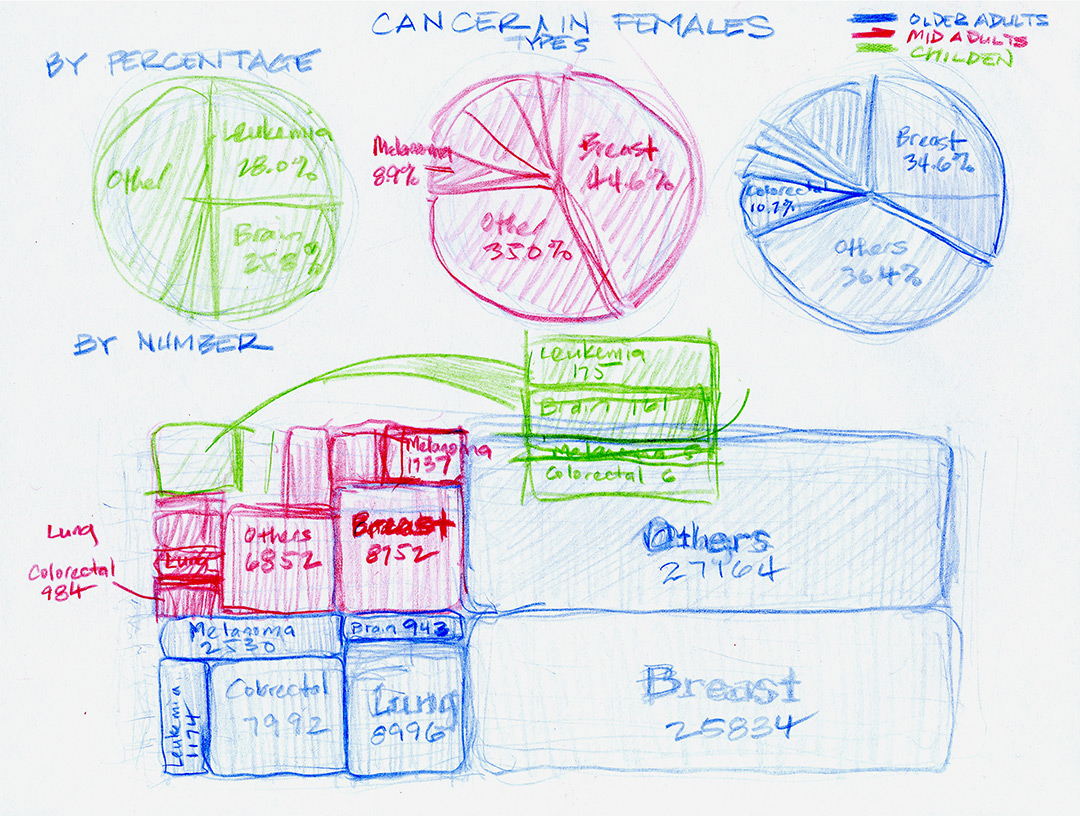 CANCER IN FEMALES
TYPES
OLDER ADULTS
MID ADULTS
CHILDEN
BY PERCENTAGE
Other
Leukemia
28.0%
Brain
25.8%
Melanoma
8.9%
Breast
44.6%
Other
35.0%
Breast
34.6%
Colorectal
10.7%
Others
36.4%
BY NUMBER
Leukemia
175
Brain 161
Melanoma 5
Colorectal 6
Melanoma
1737
Others
6852
Breast
8752
Lung
Lung
Colorectal
984
Others
27164
Melanoma
2530
Brain 943
Leukemia
1174
Colorectal
7992
Lung
8996
Breast
25834